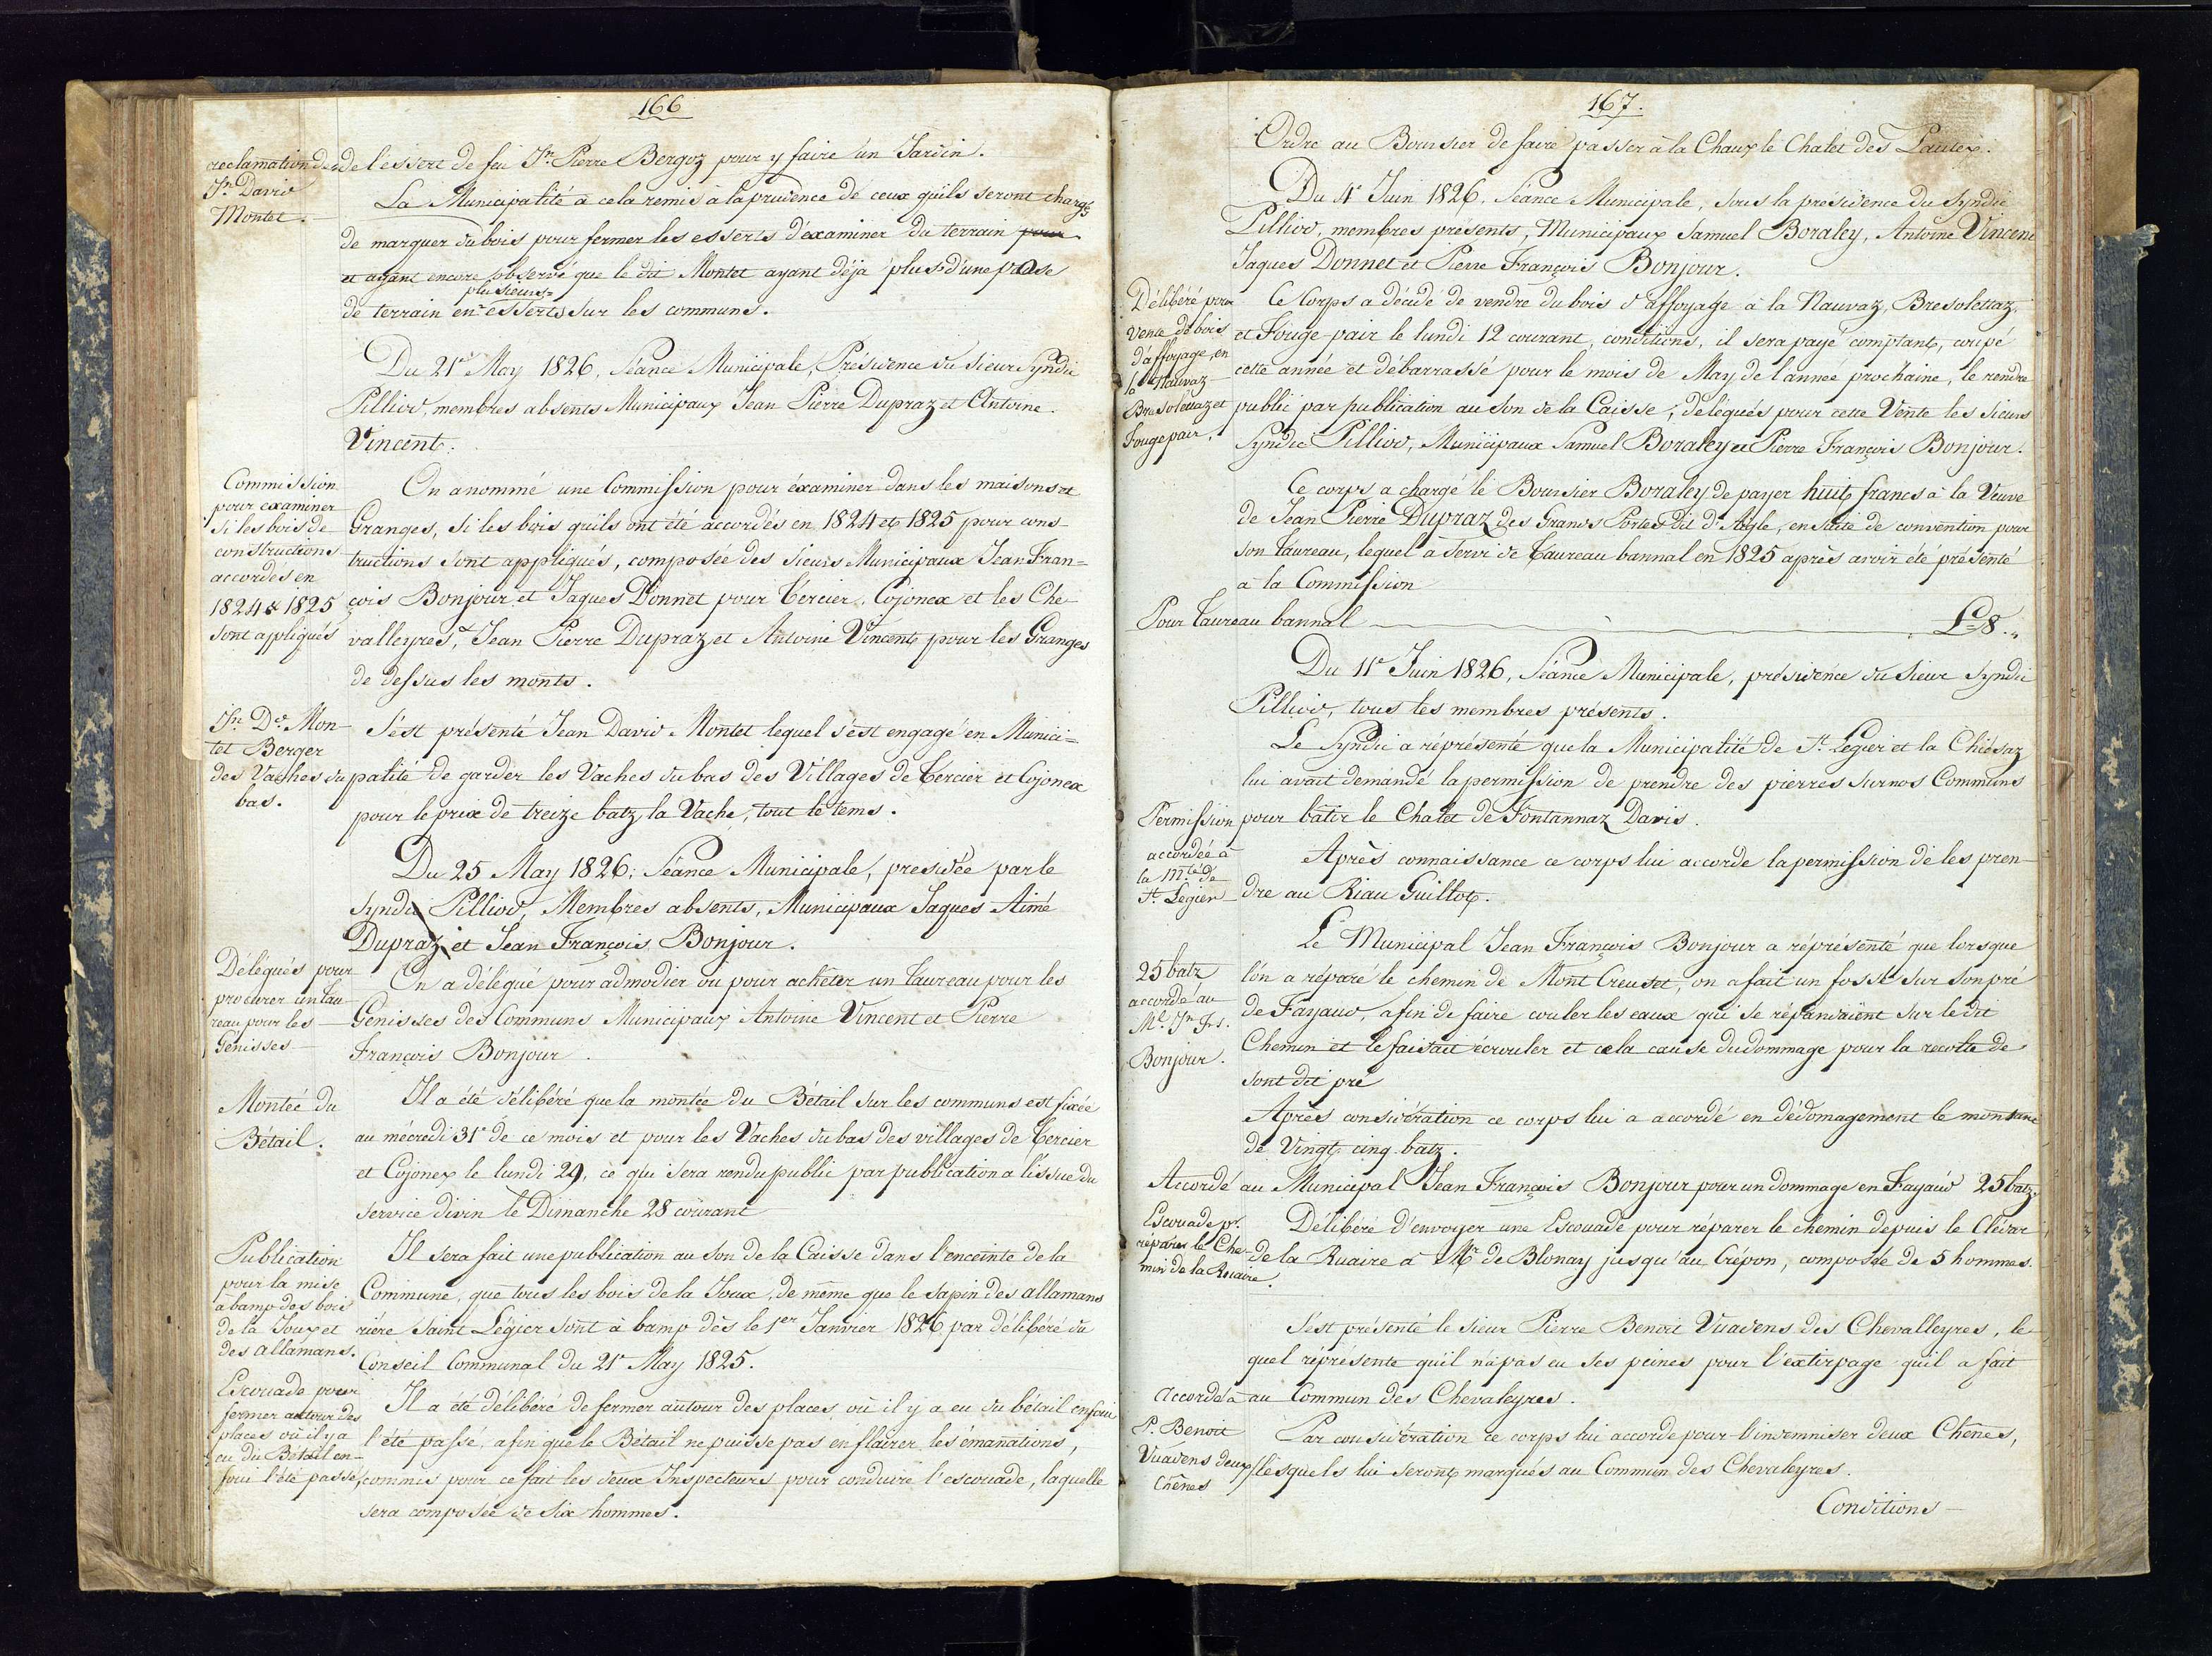 166
reclamation de
Jn. David
Montet.
de l'essert de feu Jn. Pierre Bergoz pour y faire un Jardin.
La Municipalité a cela remis à la prudence de ceux qu'ils seront chargs
de marquer du bois pour fermer les esserts d'examiner du terrain pour
et ayant encore observé que le dit Montet ayant déja plus d'une pose
de terrain en plusieurs esserts sur les communs.
Du 21e May 1826, Séance Municipale, Présidence du Sieur Syndic
Pilliod, membres absents Municipaux Jean Pierre Dupraz et Antoine
Vincent.
Commission
pour examiner
si les bois de
constructions
accordés en
1824 & 1825
sont apliqués
On a nommé une Commission pour éxaminer dans les maisons et
Granges, si les bois qu'ils ont été accordés en 1824 et 1825 pour cons-
tructions sont appliqués, composée des Sieurs Municipaux Jean Fran=
çois Bonjour et Jaques Donnet pour Tercier, Cojonex et les Che-
valleyres, Jean Pierre Dupraz et Antoine Vincent pour les Granges
de dessus les monts.
Jn. Dd. Mon-
tet Berger
des Vaches du
bas.
S'est présenté Jean David Montet lequel s'est engagé en Munici=
palité de garder les Vaches du bas des Villages de Tercier et Cojonex
pour le prix de treize batz la Vache, tout le tems.
Du 25 May 1826; Séance Municipale, presidée par le
Syndic Pilliod, Membres absents, Municipaux Jaques Aimé
Dupraz et Jean François Bonjour.
Délégués pour
procurer un tau-
reau pour les
Génisses
On a délégué pour admodier ou pour achêter un taureau pour les
Génisses des Communs Municipaux Antoine Vincent et Pierre
François Bonjour.
Montée du
Bétail.
Il a été délibéré que la montée du Bétail sur les communs est fixée
au mécredi 31e de ce mois et pour les Vaches du bas des villages de Tercier
et Cojonex le lundi 29, ce qui sera rendu public par publication a l'issue du
service divin le Dimanche 28 courant
Publication
pour la mise
à bamp des bois
de la Joux et
des allamans.
Il sera fait une publication au son de la Caisse dans l'enceinte de la
Commune, que tous les bois de la Joux, de même que le sapin des allamans
rière Saint Légier sont à bamp dès le 1er Janvier 1826 par délibéré du
Conseil Communal du 21e May 1825.
Escouade pour
fermer autour des
places où il y a
eu du Bétail en-
foui l'été passé
Il a été délibéré de fermer autour des places où il y a eu du bétail enfoui
l'été passé, afin que le Bétail ne puisse pas en flairer les émanations,
commis pour ce fait les deux Inspecteurs pour conduire l'escouade, laquelle
sera composée de Six hommes.
167.
Ordre au Boursier de faire passer à la Chaux le Chalet des Pautex.
Du 4e Juin 1826. Séance Municipale, sous la présidence du Syndic
Pilliod, membres présents, Municipaux Samuel Boraley, Antoine Vincent
Jaques Donnet et Pierre François Bonjour.
Délibéré pour
vente de bois
d'affoyage, en
la Nauvaz
Bresolettaz et
Fougepair.
Ce Corps a décidé de vendre du bois d'affoyage à la Nauvaz, Bresolettaz,
et Fouge-pair le lundi 12 courant, conditions, il sera payé comptant, coupé
cette année et débarrassé pour le mois de May de l'année prochaine, le rendre
public par publication au son de la Caisse, délégués pour cette Vente les Sieurs
Syndic Pilliod, Municipaux Samuel Boraley et Pierre François Bonjour.
Ce corps a chargé le Boursier Boraley de payer huit francs à la Veuve
de Jean Pierre Dupraz des Grands Portes dit d'Aigle, en suite de convention pour
son taureau, lequel a servi de Taureau bannal en 1825 après avoir été présenté
à la Commission
Pour Taureau bannal L. 8 „
Du 11e Juin 1826, Séance Municipale, présidence du Sieur Syndic
Pilliod, tous les membres présents.
Le Syndic a réprésenté que la Municipalité de St. Legier et la Chiésaz
lui avait demandé la permission de prendre des pierres sur nos Communs
pour bâtir le Chalet de Fontannaz Davis.
Permission
accordée à
la M.té de
St. Legier
Après connaissance ce corps lui accorde la permission de les pren-
dre au Riau Guillot.
25 batz
accordé au
Ml. Jn Frs.
Bonjour.
Le Municipal Jean François Bonjour a réprésenté que lorsque
l'on a réparé le chemin de Mont Creuset, on a fait un fossé sur son pré
de Fayaud, afin de faire couler les eaux qui se répandaient sur le dit
Chemin et le faisait écrouler et cela cause du dommage pour la recolte de
sont dit pré
Après considération ce corps lui a accordé en dédomagement le montant
de Vingt cinq batz.
Accordé au Municipal Jean François Bonjour pour un dommage en Fayaud 25 batz
Escouade pr.
réparer le Che-
min de la Ruaire.
Délibéré d'envoyer une Escouade pour réparer le chemin depuis le Clédar
de la Ruaire à Mr de Blonay jusqu'au Crépon, composée de 5 hommes.
S'est présenté le sieur Pierre Benoit Vuadens des Chevalleyres, le-
quel réprésente qu'il n'a pas eu ses peines pour l'extirpage qu'il a fait
au Commun des Chevaleyres.
accordé à
P. Benoit
Vuadens deux
Chênes
Par considération ce corps lui accorde pour l'indemniser deux Chênes,
lesquels lui seront marqués au Commun des Chevaleyres.
Conditions